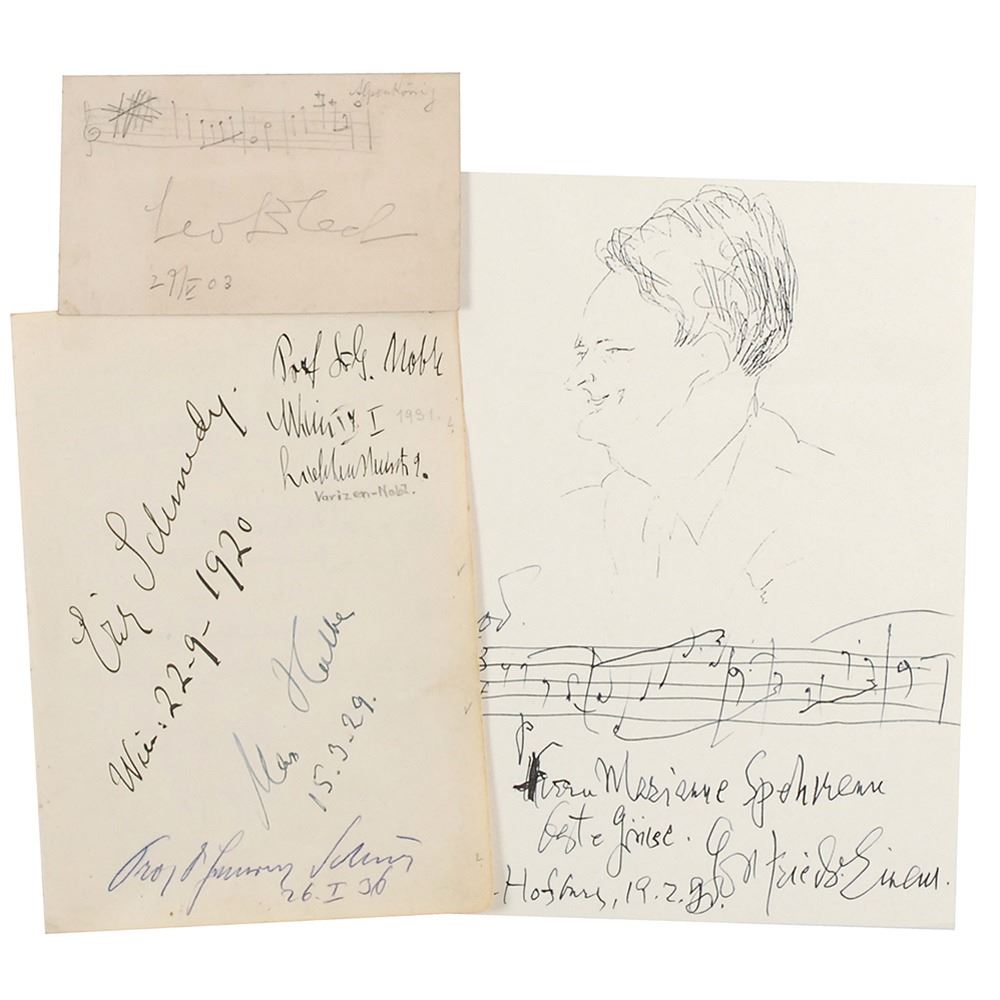 Alpenkönig
Leo Blech
29/V 03
Prof Dr G. Nobl
Wien IX I 1931.
9.
Varizen-Nobl.
Eric Schmedes.
Wien: 22-9-1920
Max Halbe
15.3.29.
Prof Dr Schmitz
26.I 36
p
Frau Marianne Spohrenn
beste Grüsse. Gottfried v. Einem.
-Hofburg, 19.2.